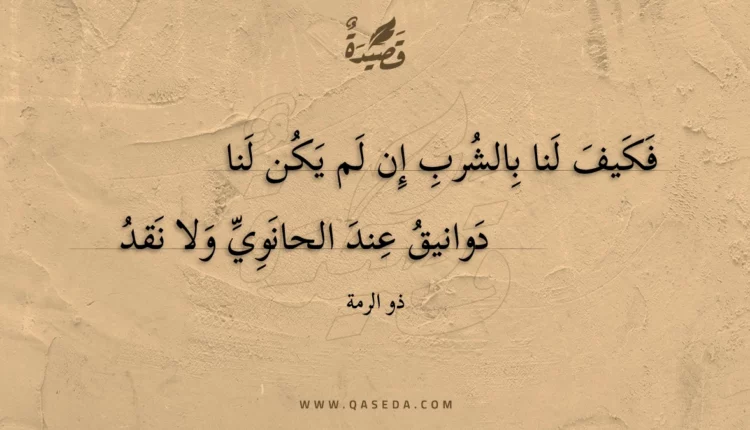 قَصِيدَةٌ
فَكَيفَ لَنا بِالشُربِ إِن لَم يَكُن لَنا
دَوانيقُ عِندَ الحانَوِيِّ وَلا نَقدُ
ذو الرمة
WWW.QASEDA.COM